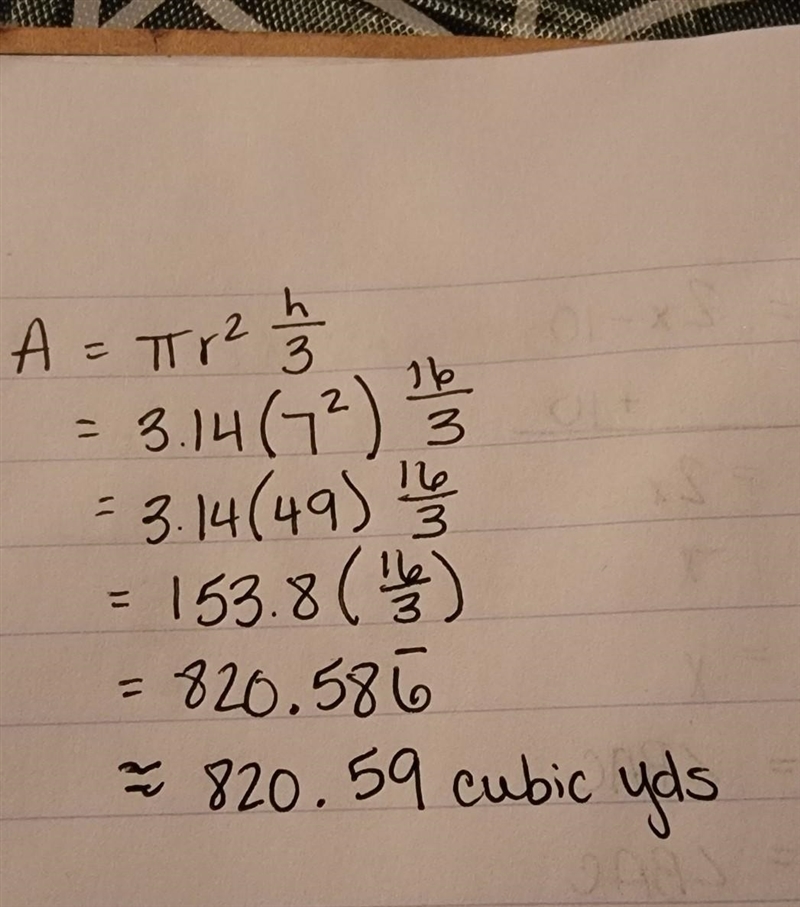 A = πr² h/3
= 3.14(7²) 16/3
= 3.14(49) 16/3
= 153.8(16/3)
= 820.586̅
≈ 820.59 cubic yds